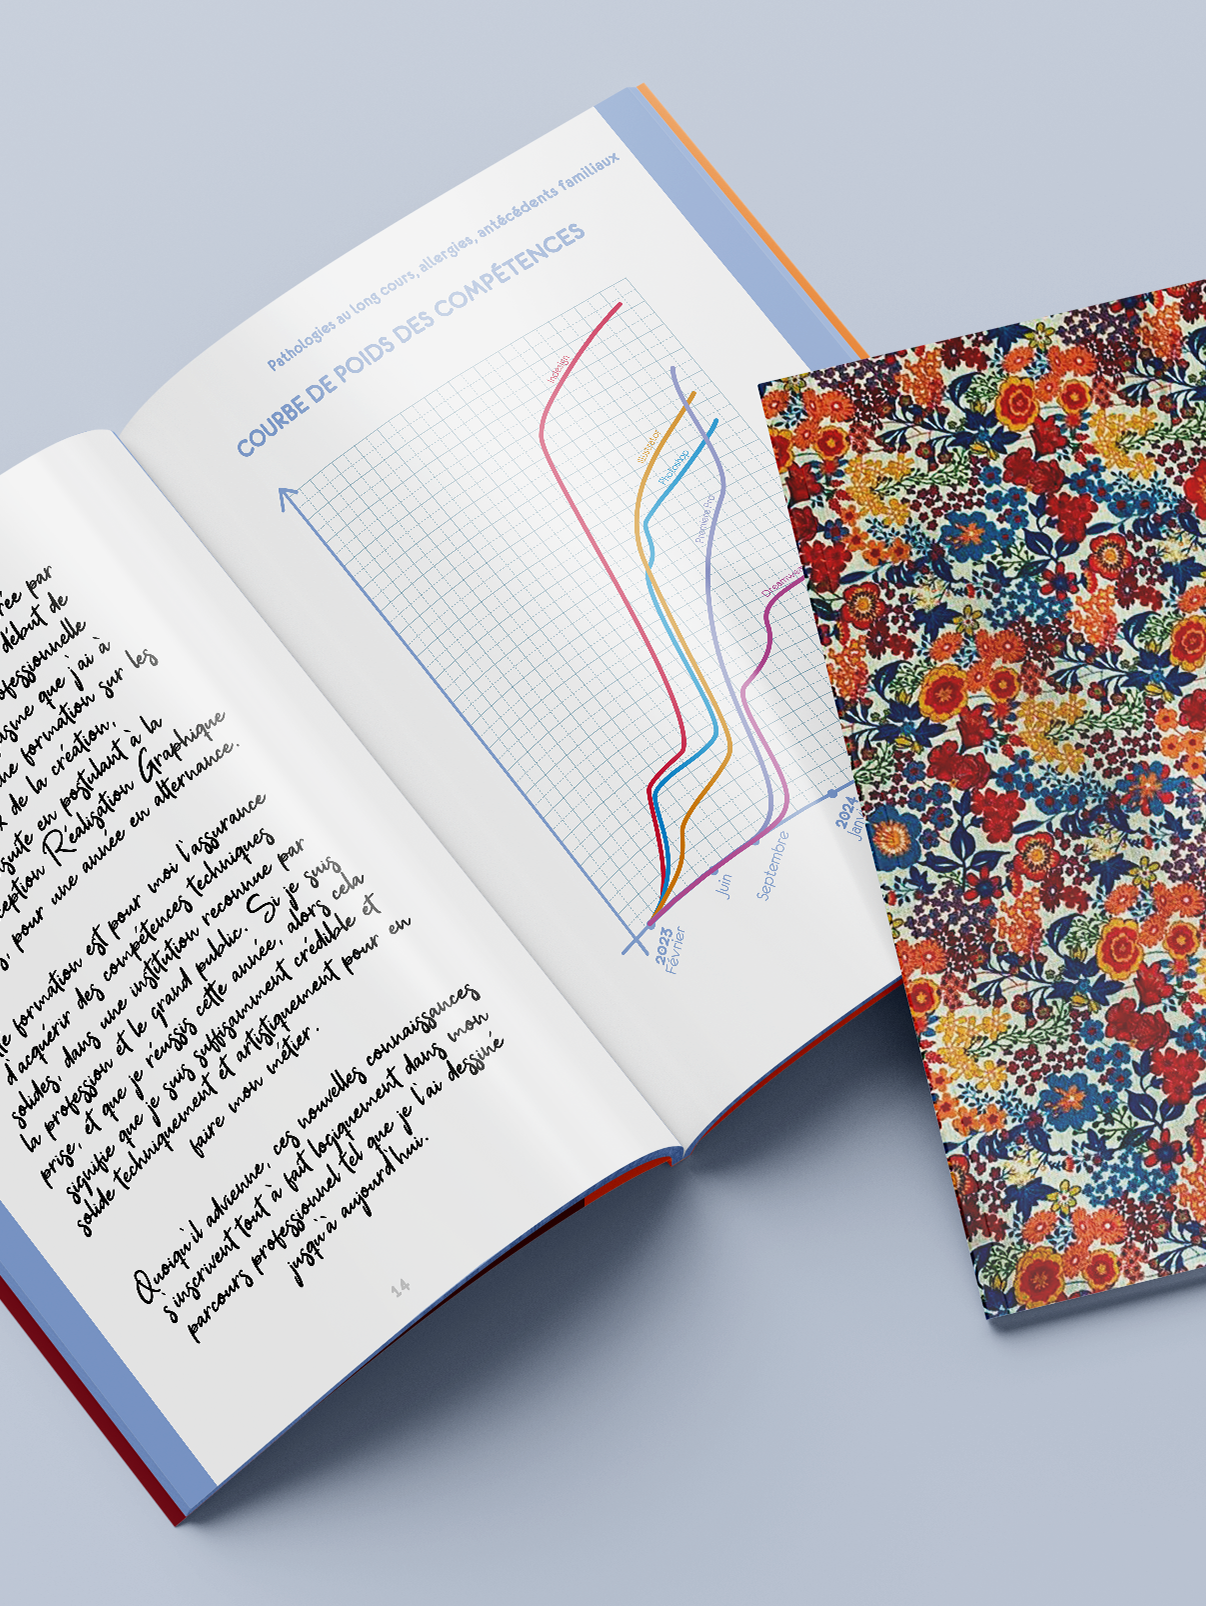 rée par
début de
ofessionnelle
asme que j'ai à
ne formation sur les
x de la création,
suite en postulant à la
ception Réalisation Graphique
s, pour une année en alternance.
tte formation est pour moi l'assurance
d'acquérir des compétences techniques
solides, dans une institution reconnue par
la profession et le grand public. Si je suis
prise, et que je réussis cette année, alors cela
signifie que je suis suffisamment crédible et
solide techniquement et artistiquement pour en
faire mon métier.
Quoiqu'il advienne, ces nouvelles connaissances
s'inscrivent tout à fait logiquement dans mon
parcours professionnel tel que je l'ai dessiné
jusqu'à aujourd'hui.
14
Pathologies au long cours, allergies, antécédents familiaux
COURBE DE POIDS DES COMPÉTENCES
Indesign
Illustrator
Photoshop
Première Pro
Dreamwea
2023
Février
Juin
Septembre
2024
Janv